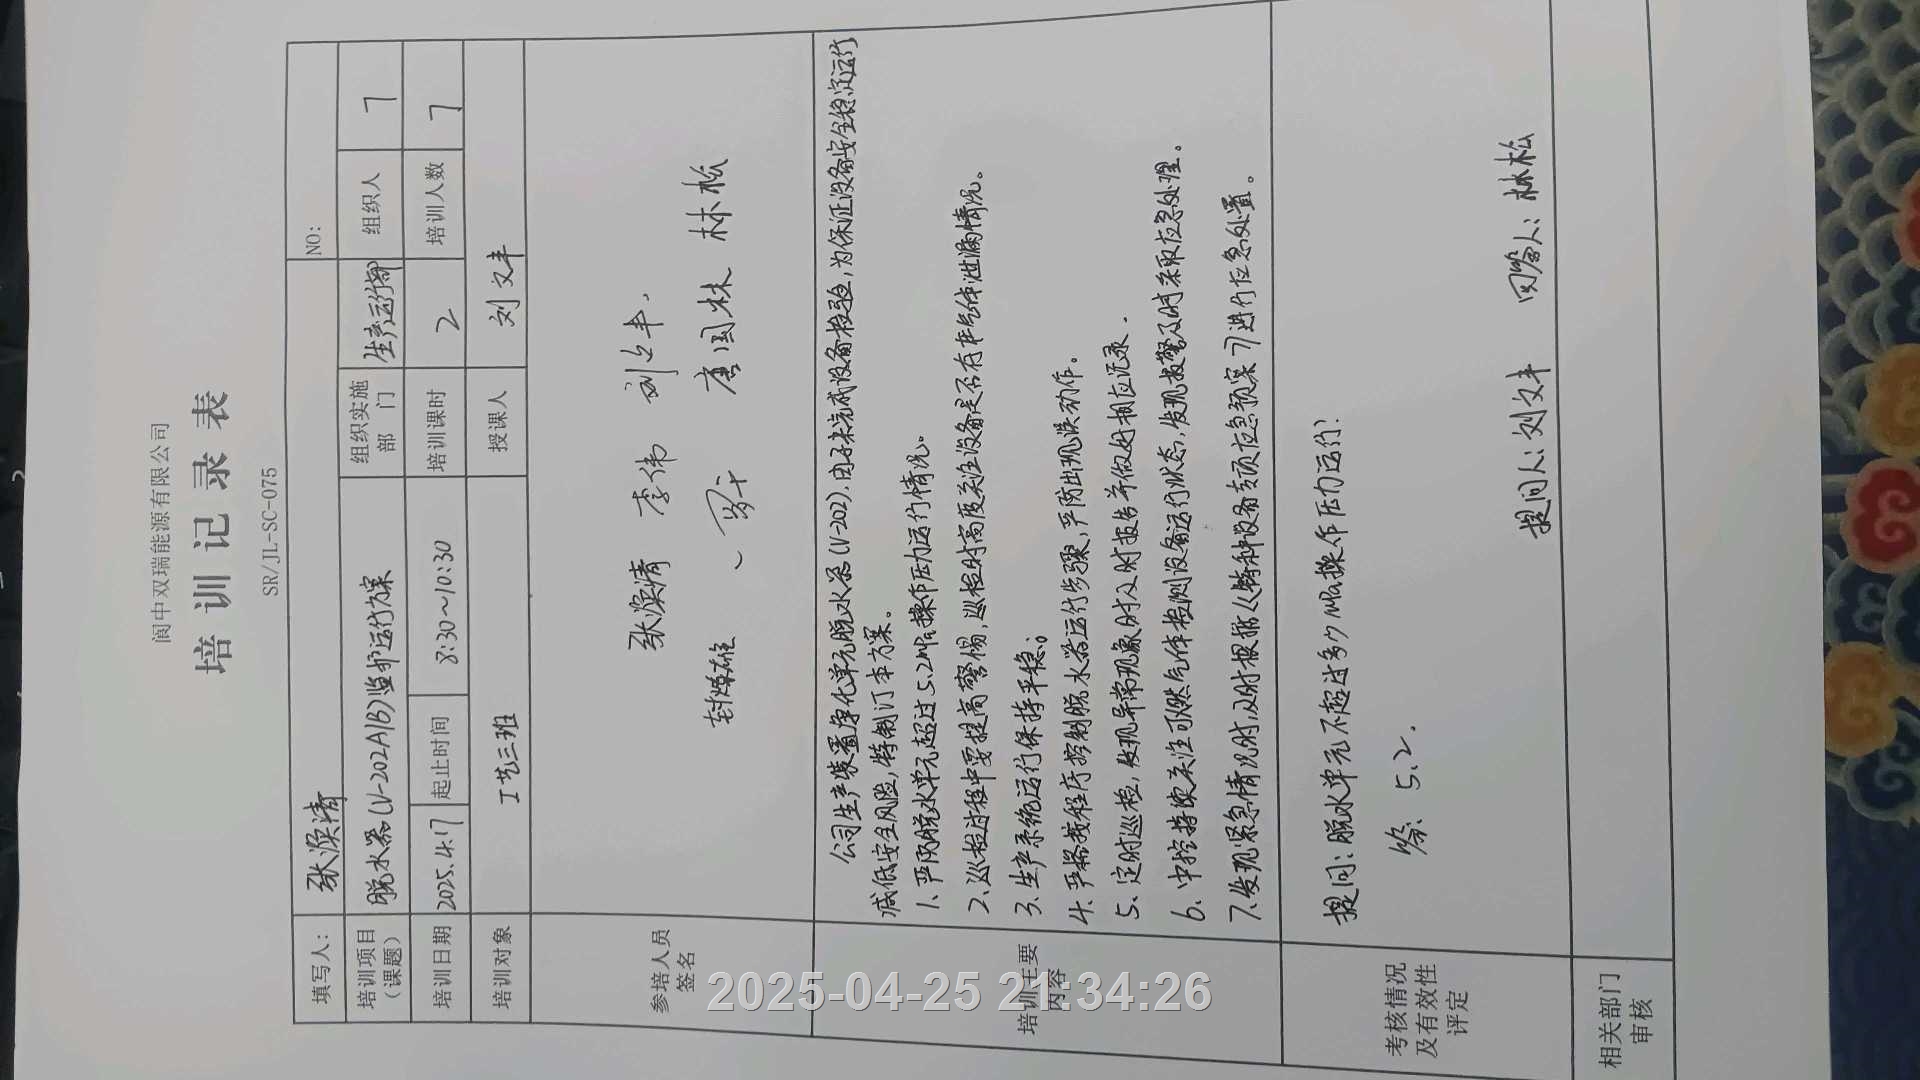 阆中双瑞能源有限公司
培训记录表
SR/JL-SC-075
填写人： 张滨清 NO:
培训项目（课题） 脱水器(V-202A/B)监护运行方案 组织实施部门 生产运行部 组织人 7
培训日期 2025.4.17 起止时间 8:30~10:30 培训课时 2 培训人数 7
培训对象 工艺三班 授课人 刘文丰
参培人员签名
张滨清 李伟 刘文丰.
唐国林 林松
培训主要内容
公司生产装置净化单元脱水器(V-202).由于未完成设备检验,为保证设备安全稳定运行
减低安全风险,特制订本方案。
1、严防脱水单元超过5.2MPa操作压力运行情况。
2、巡检过程中要提高警惕,巡检时高度关注设备是否存在气体泄漏情况。
3、生产系统运行保持平稳;
4、严格按程序控制脱水器运行步骤,严防出现误动作。
5、定时巡检,发现异常现象时及时报告并做好相应记录.
6、中控持续关注可燃气体检测设备运行状态,发现报警及时采取应急处理。
7、发现紧急情况时,及时根据《特种设备专项应急预案》进行应急处置。
考核情况及有效性评定
提问:脱水单元不超过多少MPa操作压力运行?
答: 5.2.
提问人:刘文丰 回答人:林松
相关部门审核
2025-04-25 21:34:26